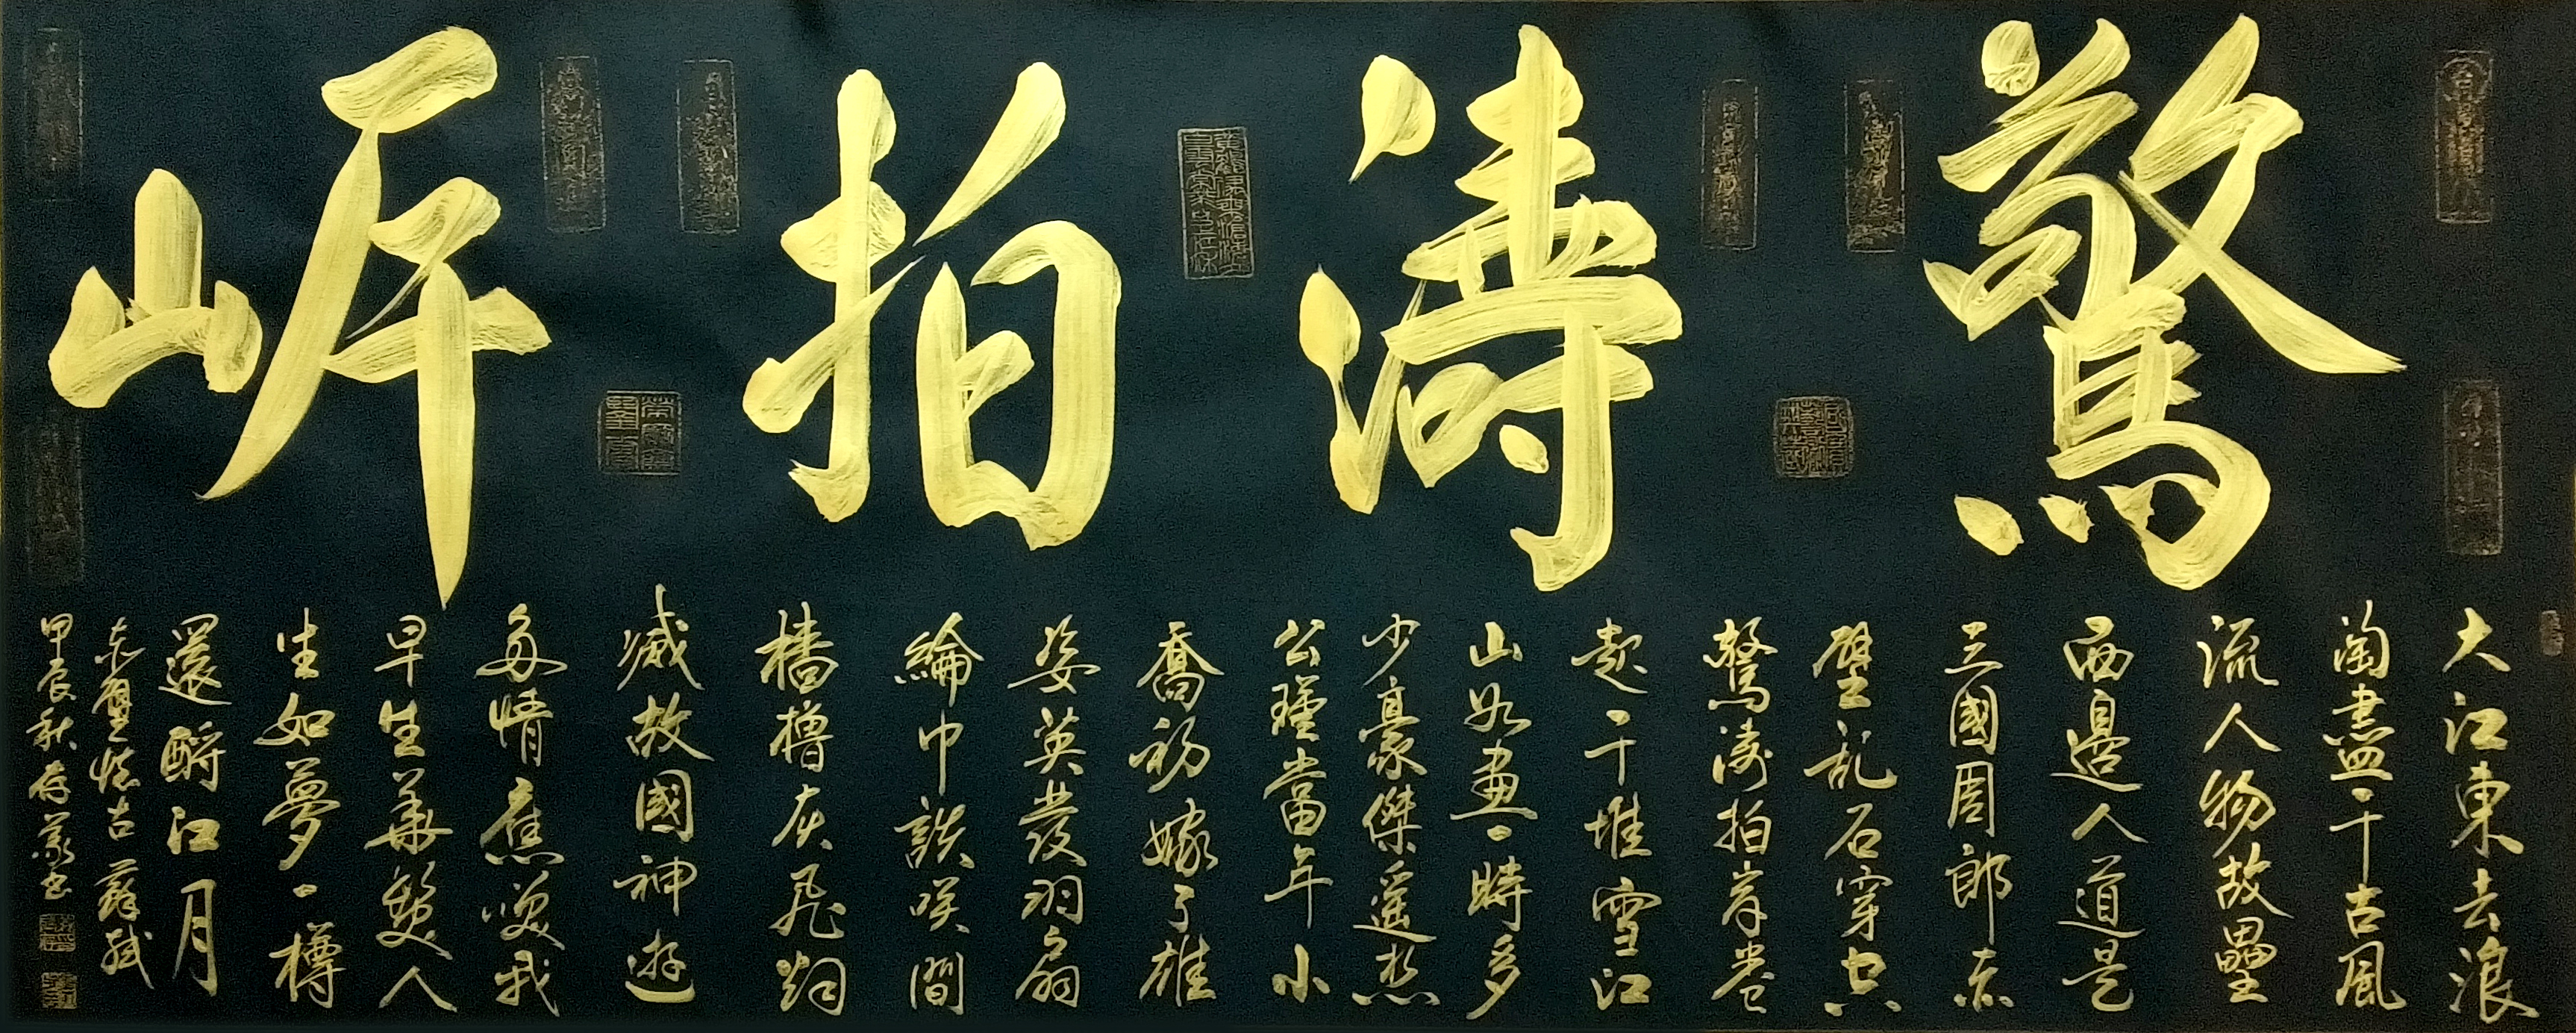 驚濤拍岸
大江東去浪
淘盡千古風
流人物故壘
西邊人道是
三國周郎赤
壁乱石穿空
驚濤拍岸卷
起千堆雪江
山如畫一時多
少豪傑遥想
公瑾當年小
喬初嫁了雄
姿英發羽扇
綸巾談笑間
檣櫓灰飛烟
滅故國神遊
多情應笑我
早生華髮人
生如夢一樽
還酹江月
赤壁懷古蘇軾
甲辰秋存義书